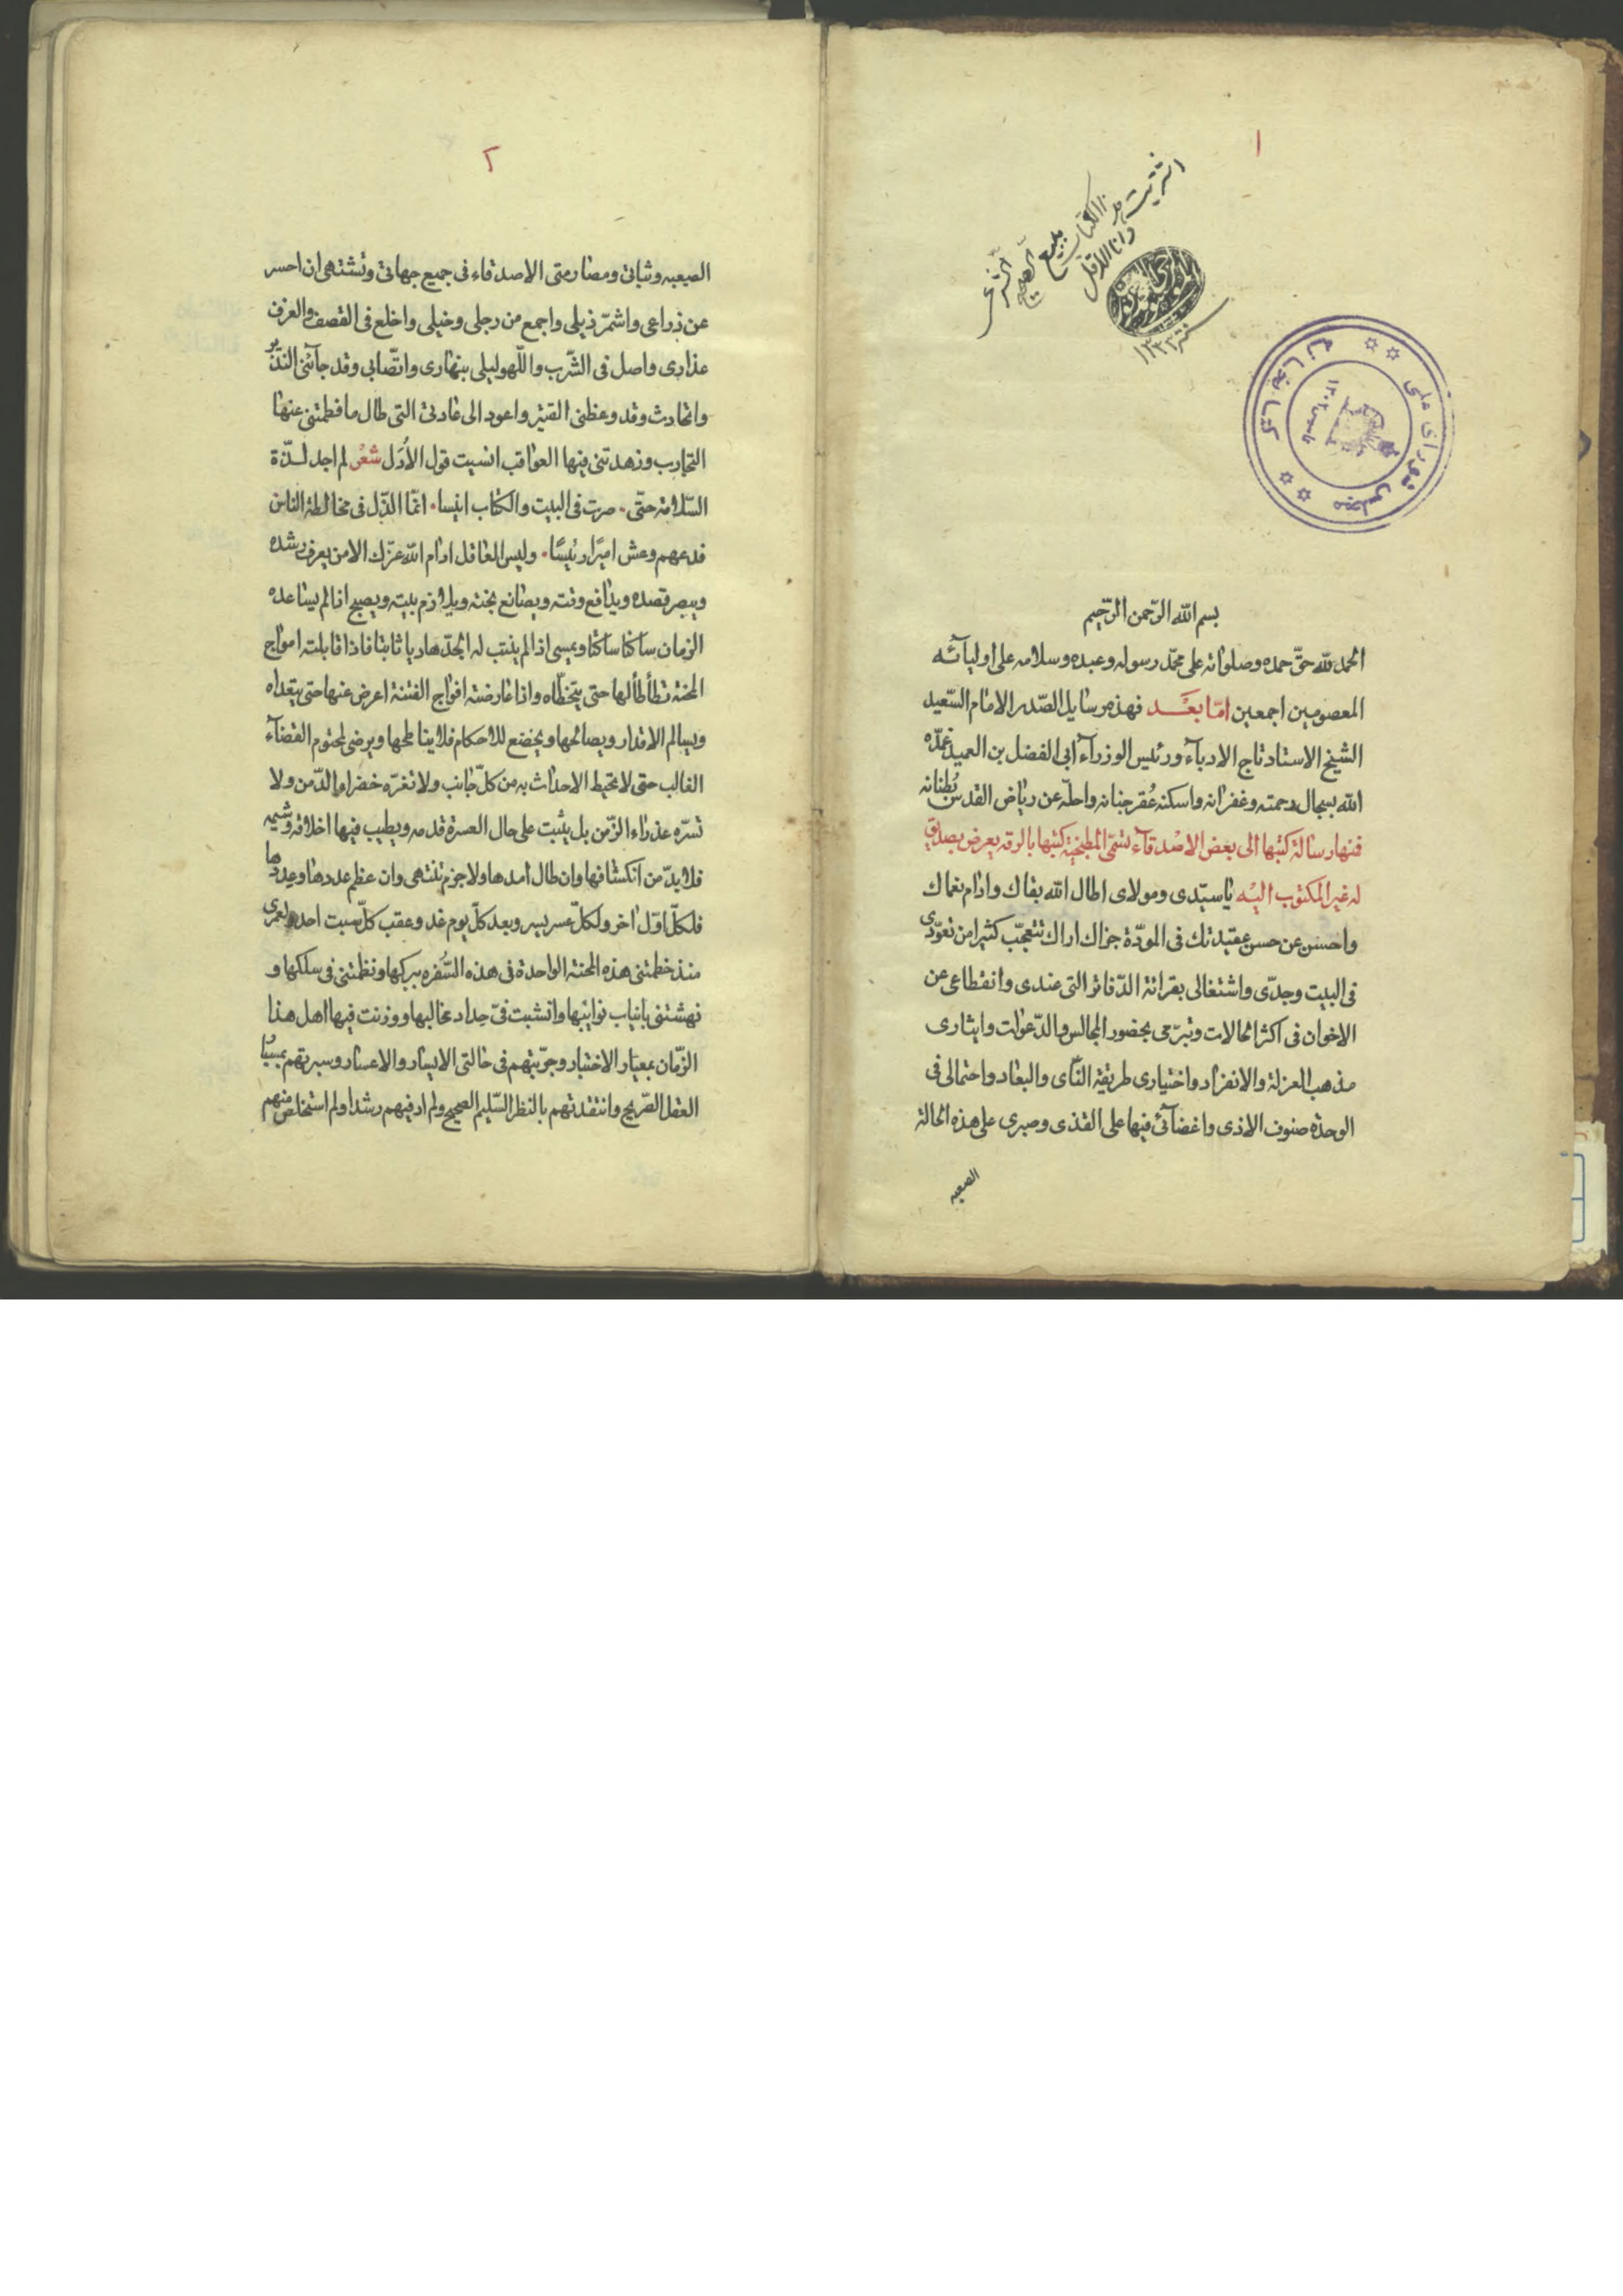 ١
اشتريت هذا الكتاب
ببيع الصحيح الشرعي
وانا الاقل
سنة ١٣٣٣
كتابخانه مجلس شورای ملی
بسم الله الرّحمن الرّحيم
الحمد للّه حقّ حمده وصلواته على محمّد رسوله وعبده وسلامه على اوليآئه
المعصومين اجمعين امّا بعَْد فهذه رسايل الصّدر الامام السّعيد
الشيخ الاستاد تاج الادبآء ورئيس الوزرآء ابى الفضل بن العميد تغمّده
اللّه بسجال رحمته وغفرانه واسكنه عُقر جنانه واحلّه عن رياض القدس بُطنانه
فمنها رسالة كتبها الى بعض الاصْدقآء تسمّى المطبخية كتبها بالرقه يعرض بصديق
له غير المكتوب اليْه يا سيّدى ومولاى اطال اللّه بقاك وادام نعماك
واحسن عن حسن عقيدتك فى المودّة جزاك اراك تتعجّب كثيرا من تعوّدى
فى البيت وجدّى واشتغالى بقرائة الدّفاتر التى عندى وانقطاعى عن
الاخوان فى اكثر الحالات وتبرّمى بحضور المجالس والدّعوات وايثارى
مذهب العزلة والانفراد واختيارى طريقة النّاى والبعاد واحتمالى فى
الوحدة صنوف الاذى واغضآئى فيها على القذى وصبرى على هذه الحالة
الصعبه
٢
الصعبه وثباتى ومصارمتى الاصدقاء فى جميع جهاتى وتشتهى ان احسر
عن ذراعى واشمّر ذيلى واجمع من رجلى وخيلى واخلع فى القصف والعزف
عذارى واصل فى الشّرب واللّهو ليلى بنهارى واتّصابى وقد جآئنى النّذير
واتحادث وقد وعظنى القتير واعود الى عادتى التى طال ما فطمتنى عنها
التجارب وزهدتنى فيها العواقب انسيت قول الأوّل شعْر لم اجد لذّة
السّلامة حتّى . صرت فى البيت والكتاب انيسا . انّما الذّل فى مخالطة الناس
فدعهم وعش اميرًا رئيسًا . وليس العاقل ادام اللّه عزّك الا من يعرف رشده
ويبصر قصده ويدافع وقته ويصانع بخته ويلازم بيته ويصبح اذا لم يساعده
الزمان ساكنا ساكتا ويمسى اذ لم ينتب له الجدّ هاديا ثابتا فاذا قابلته امواج
المحنة تطأطأ لها حتى يتخطّاه واذا عارضته افواج الفتنة اعرض عنها حتى يتعدّاه
ويسالم الاقدار ويصالحها ويخضع للاحكام فلا يناطحها ويرضى لمحتوم القضآء
الغالب حتى لا تحيط الاحداث به من كلّ جانب ولا تغرّه خضراء الدّمن ولا
تسرّه عذراء الزّمن بل يثبت على حال العسرة قدمه ويطيب فيها اخلاقه وشيمه
فلا بدّ من انكشافها وان طال امدها ولا جرم تنتهى وان عظم عددها وعددها
فلكلّ اوّل اخر ولكلّ عسر يسر وبعد كلّ يوم غد وعقب كلّ سبت احد ولعمرى
منذ خطمتنى هذه المحنة الواحدة فى هذه السّفره ببركها ونظمتنى فى سلكها و
نهشتنى بانياب نوائبها وانشبت فىّ حداد مخالبها ووزنت فيها اهل هذا
الزّمان بمعيار الاختبار وجرّبتهم فى حالتى الايسار والاعسار وسبرتهم بمسبار
العقل الصّريح وانتقدتهم بالنظر السّليم الصحيح ولم ار فيهم رشدا ولم استخلص منهم